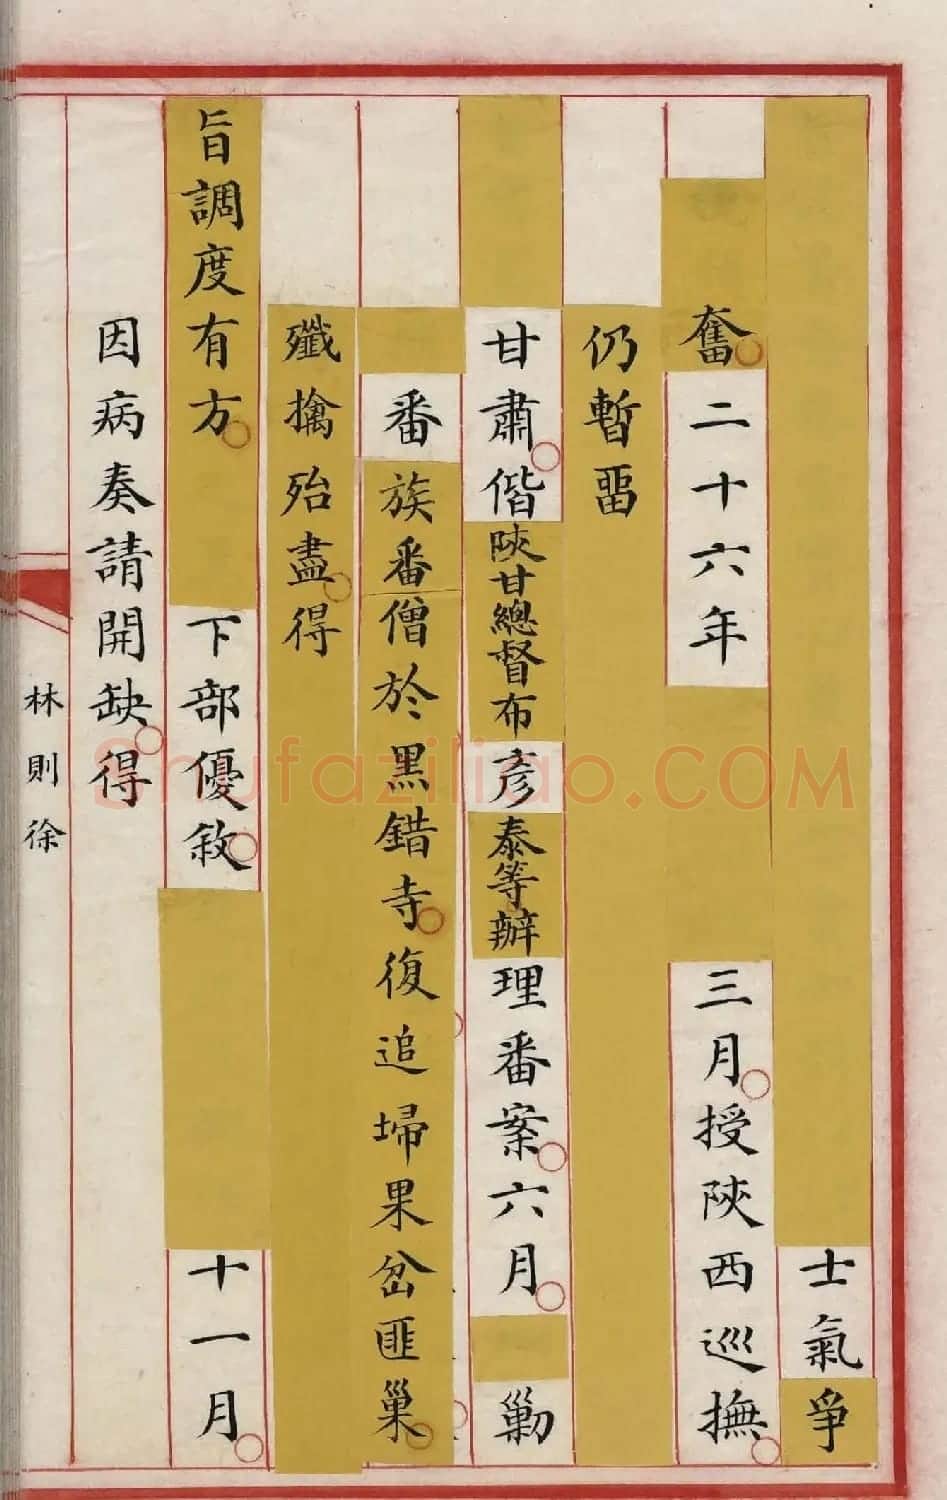 士氣爭
奮二十六年三月授陝西巡撫
仍暫畱
甘肅偕陝甘總督布彥泰等辦理番案六月勦
番族番僧於黑錯寺復追埽果岔匪巢
殲擒殆盡得
旨調度有方下部優敘十一月
因病奏請開缺得
林則徐
Shufaziliao.COM